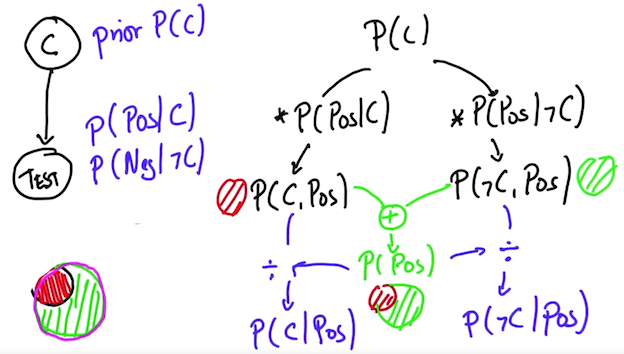 C prior P(C)
P(Pos|C)
P(Neg|¬C)
TEST
P(C)
* P(Pos|C) * P(Pos|¬C)
P(C, Pos) + P(¬C, Pos)
÷ P(Pos) ÷
P(C|Pos) P(¬C|Pos)